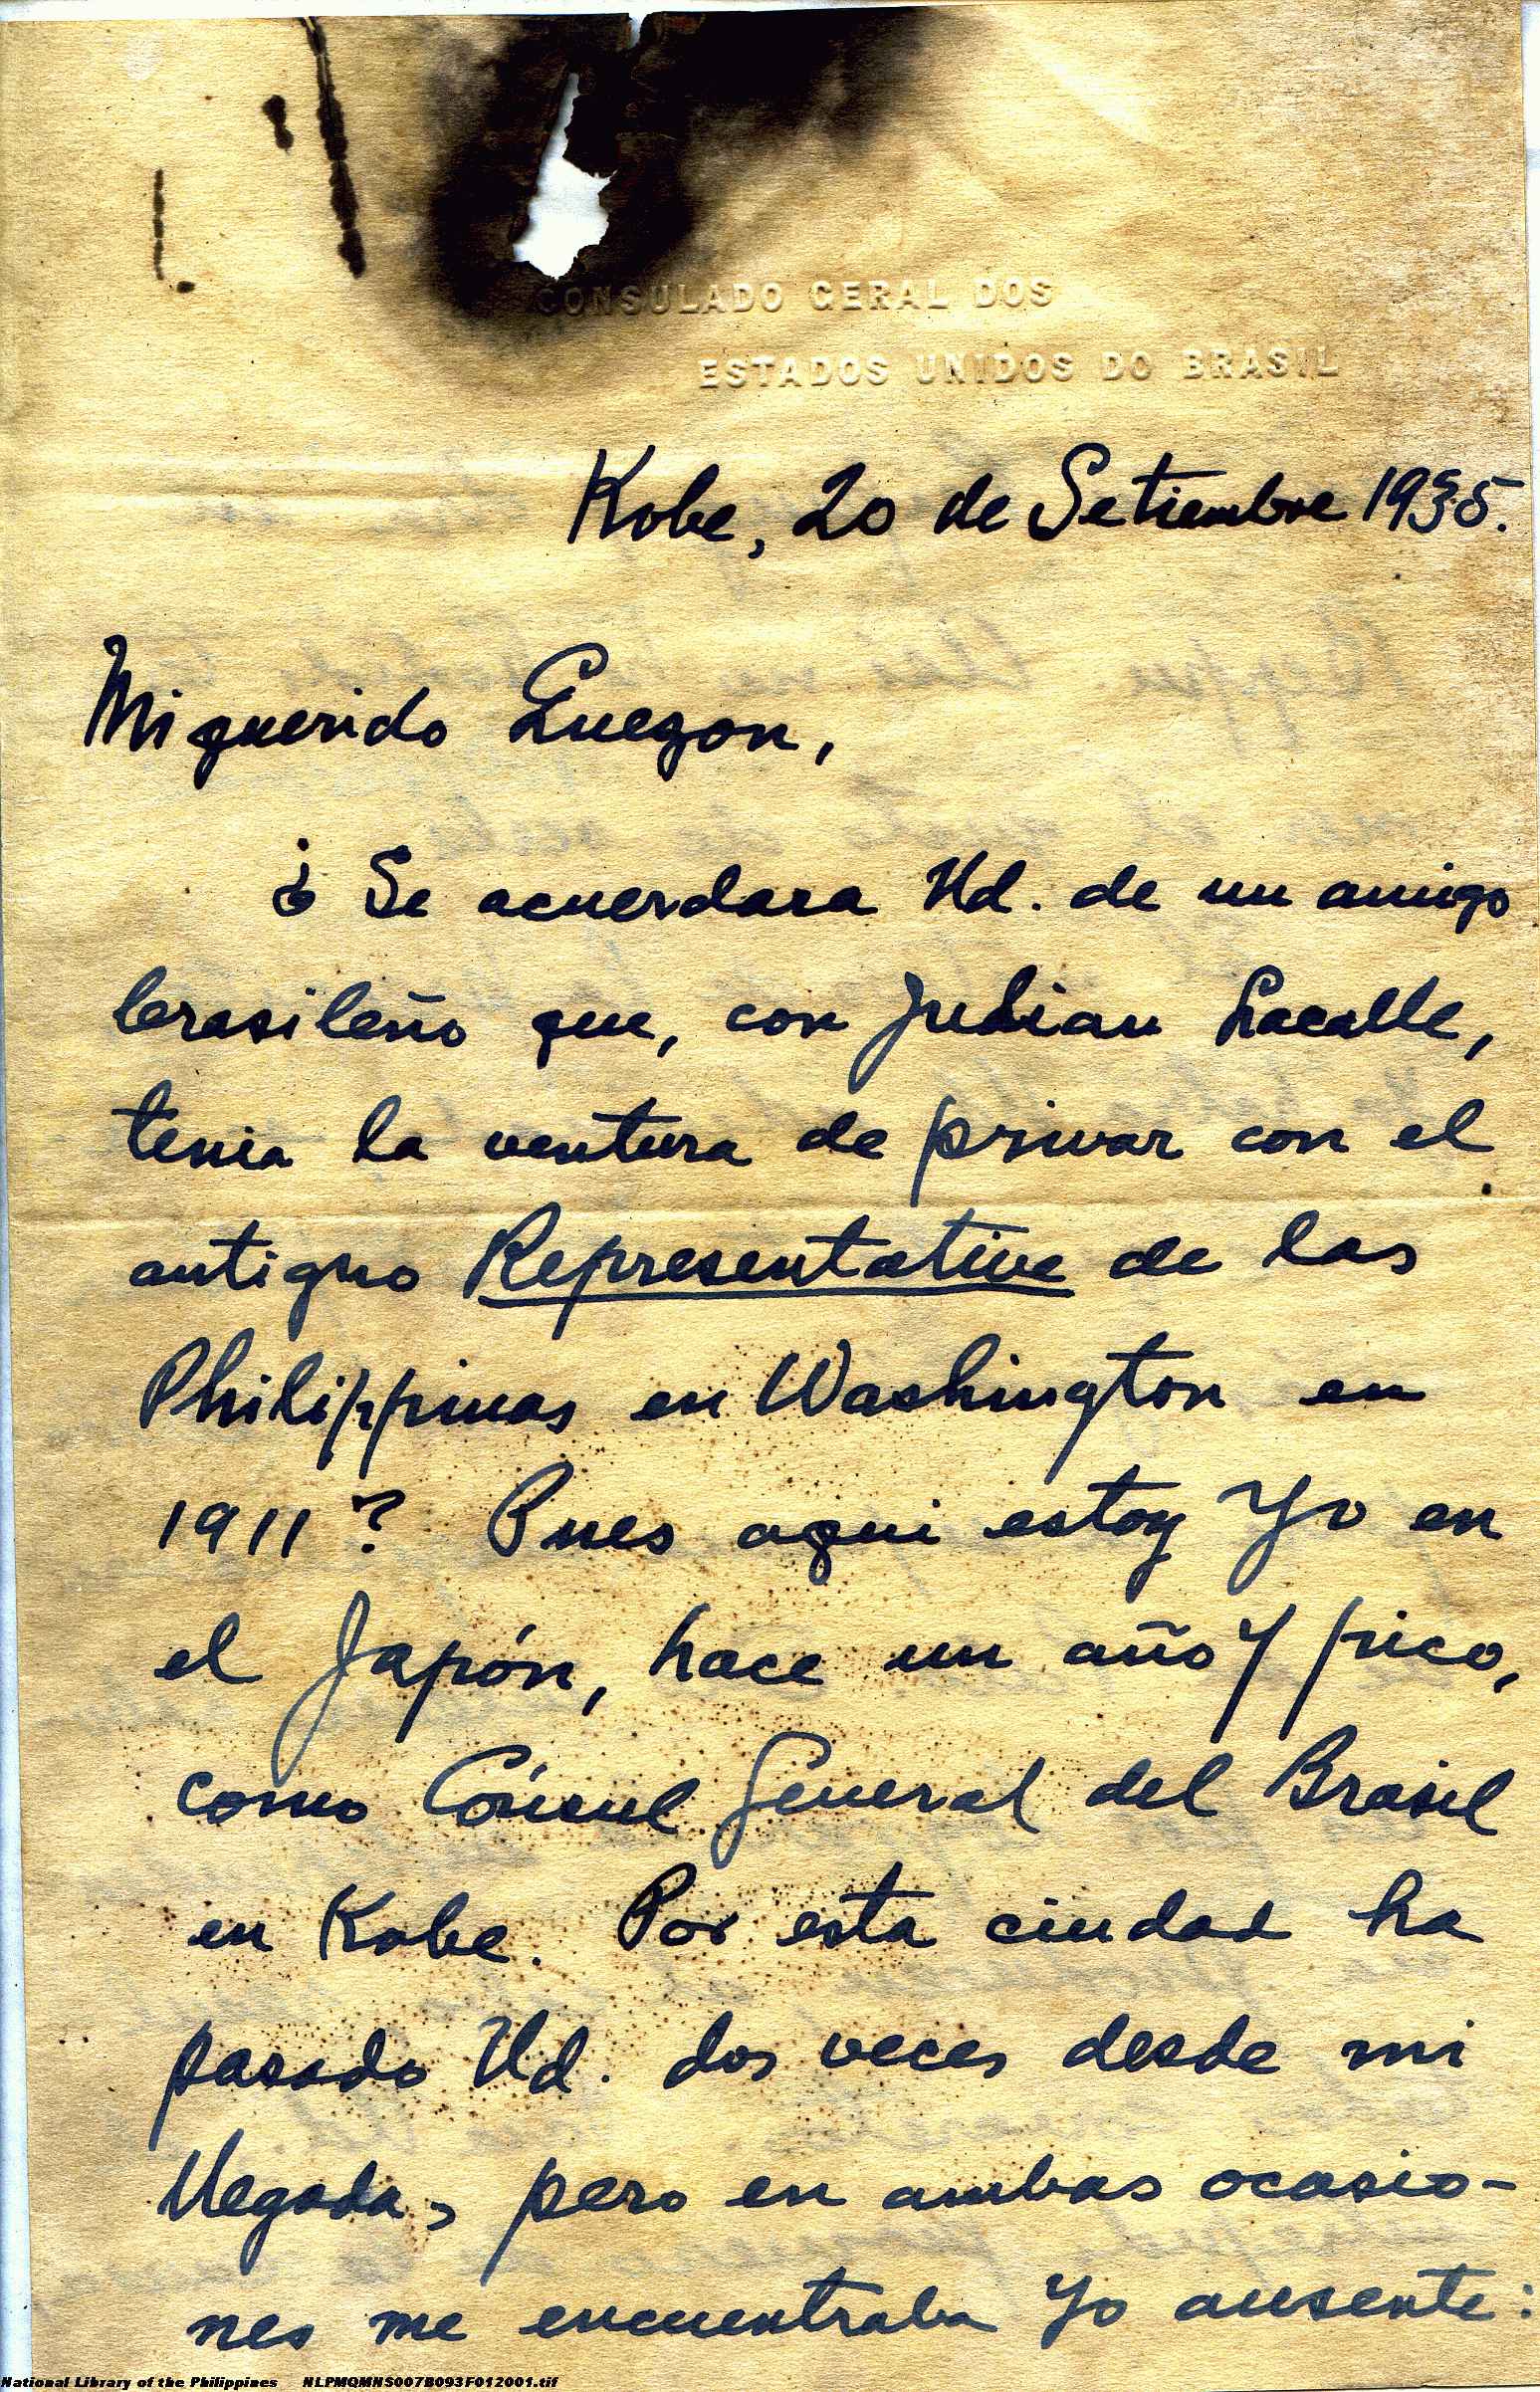 CONSULADO GERAL DOS
ESTADOS UNIDOS DO BRASIL
Kobe, 20 de Setiembre 1935.
Mi querido Quezon,
¿ Se acuerdara Ud. de un amigo
brasileño que, con Julian Lacalle,
tenia la ventura de privar con el
antiguo Representative de las
Philippinas en Washington en
1911? Pues aqui estoy yo en
el Japón, hace un año y pico,
como Cónsul General del Brasil
en Kobe. Por esta ciudad ha
pasado Ud. dos veces desde mi
llegada, pero en ambas ocasio-
nes me encuentraba yo ausente:
National Library of the Philippines NLPMQMNS007B093F012001.tif